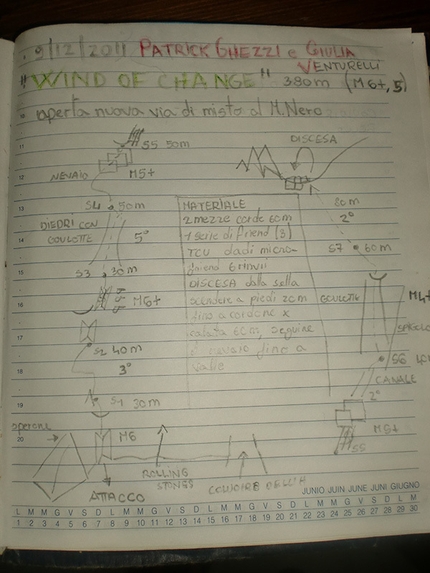 9/12/2011 PATRICK GHEZZI e GIULIA
VENTURELLI
"WIND OF CHANGE" 380m (M6+, 5)
aperta nuova via di misto al M.Nero
S5 50m
DISCESA
NEVAIO
M5+
S4 50m
DIEDRI CON
GOULOTTE
5°
S3 30m
M6+
S2 40m
3°
S1 30m
SPERONE
M6
ATTACCO
ROLLING
STONES
COULOIRE DELL'H
MATERIALE
2 mezze corde 60m
1 serie di friend (3)
TCU dadi micro
friend
DISCESA dalla sella
scendere a piedi 20m
fino a cordone x
calata 60m, seguire
il nevaio fino a
valle
80m
2°
S7 60m
GOULOTTE
M4+
S6
CANALE
2°
M5+
S5
JUNIO JUIN JUNE JUNI GIUGNO
L M M G V S D L M M G V S D L M M G V S D L M M G V S D L M
1 2 3 4 5 6 7 8 9 10 11 12 13 14 15 16 17 18 19 20 21 22 23 24 25 26 27 28 29 30